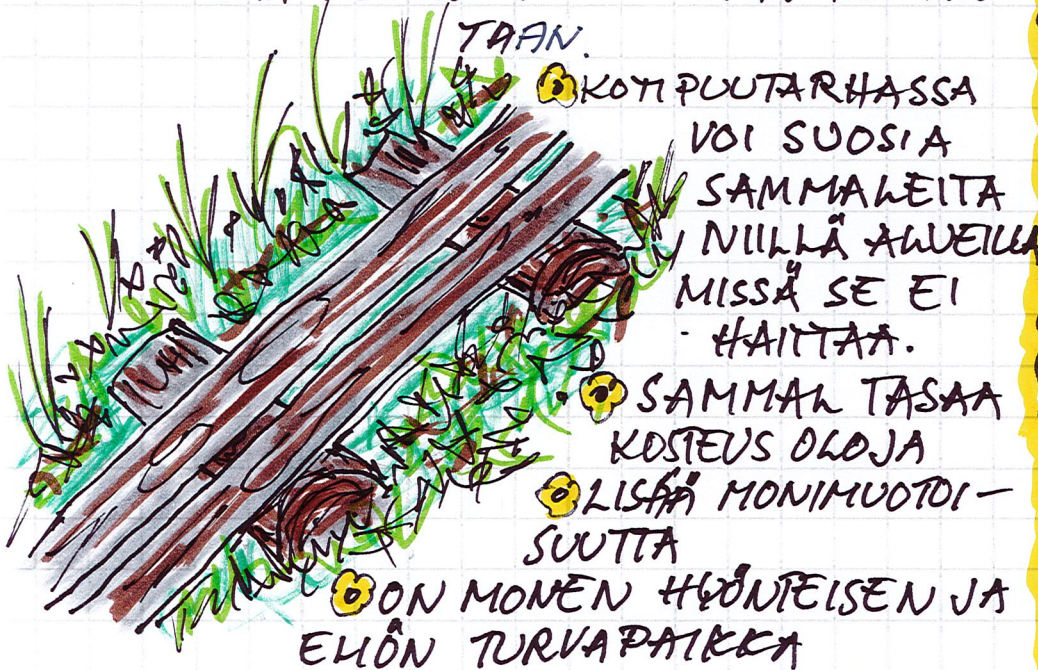 TAAN.
KOTIPUUTARHASSA
VOI SUOSIA
SAMMALEITA
NIILLÄ ALUEILLA
MISSÄ SE EI
HAITTAA.
SAMMAL TASAA
KOSTEUS OLOJA
LISÄÄ MONIMUOTOI-
SUUTTA
ON MONEN HYÖNTEISEN JA
ELIÖN TURVAPAIKKA